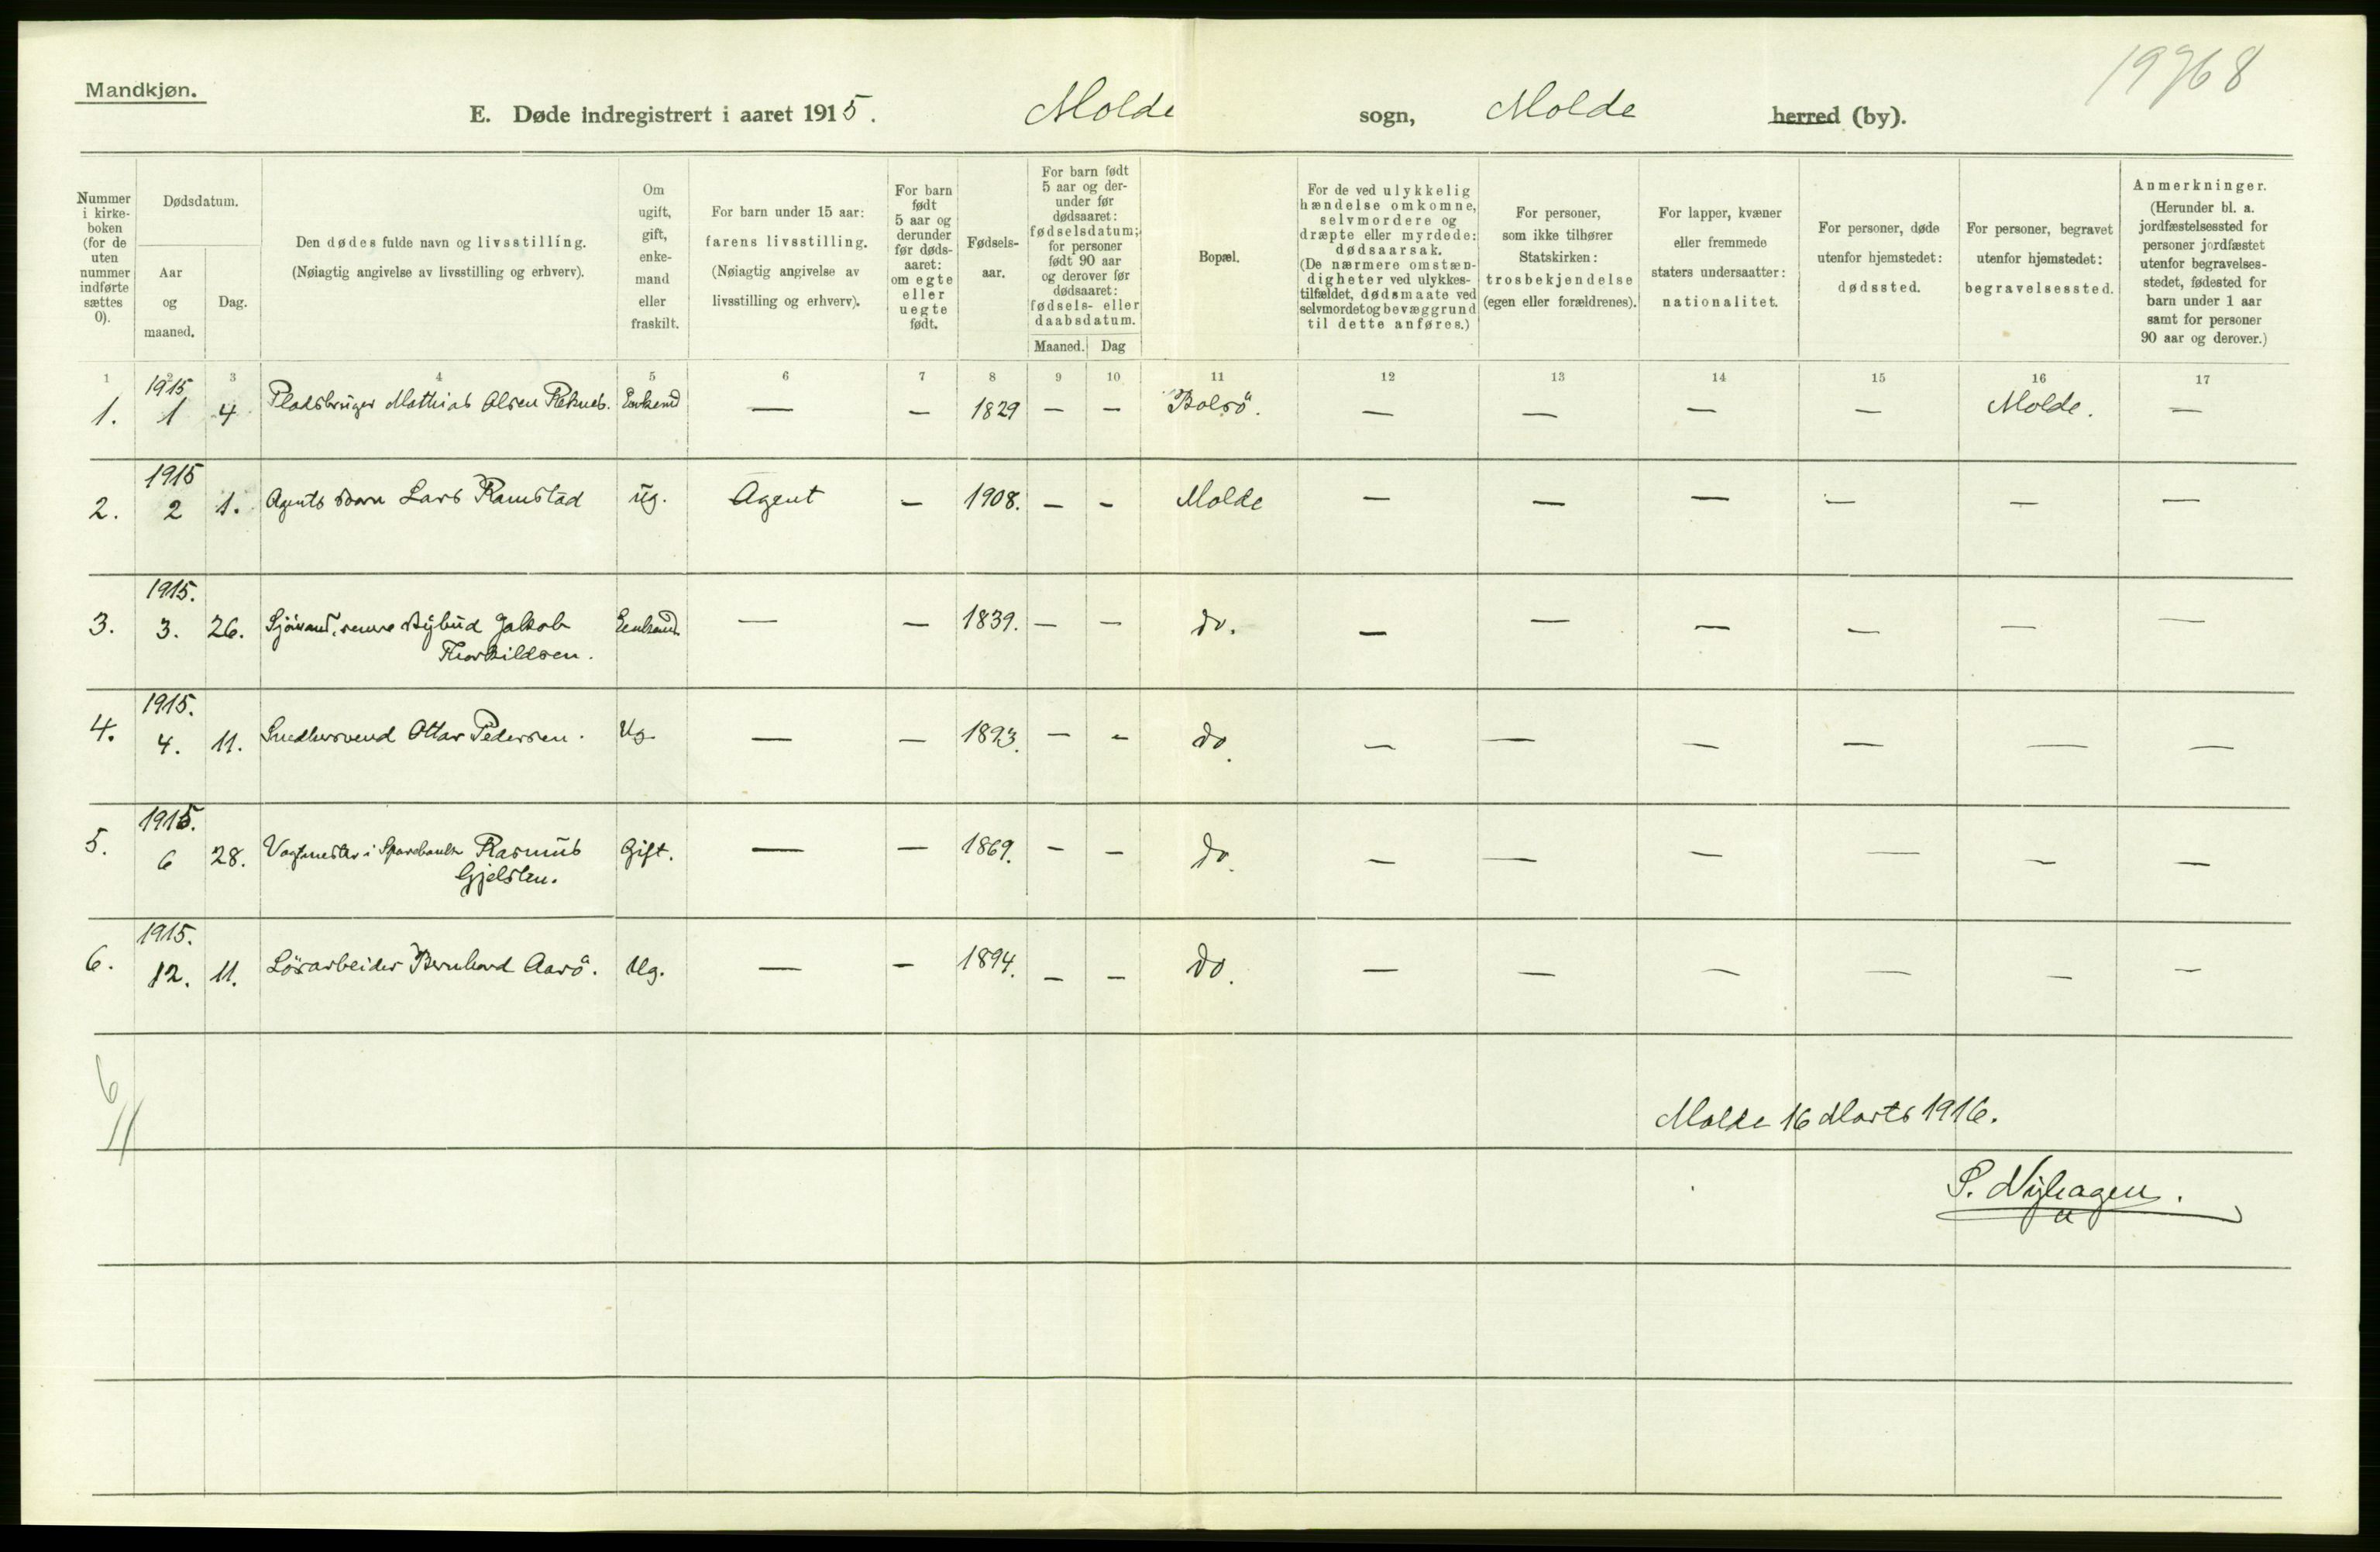 Mandkjøn.
19768
E. Døde indregistrert i aaret 1915. Molde sogn, Molde herred (by).
Nummer i kirke-boken (for de uten nummer indførte sættes 0).
Dødsdatum.
Aar og maaned.
Dag.
Den dødes fulde navn og livsstilling.
(Nøiagtig angivelse av livsstilling og erhverv).
Om ugift, gift, enke-mand eller fraskilt.
For barn under 15 aar:
farens livsstilling.
(Nøiagtig angivelse av livsstilling og erhverv).
For barn født 5 aar og derunder før døds-aaret: om egte eller uegte født.
Fødsels-aar.
For barn født 5 aar og der-under før dødsaaret: fødselsdatum; for personer født 90 aar og derover før dødsaaret: fødsels- eller daabsdatum.
Maaned. Dag
Bopæl.
For de ved ulykkelig hændelse omkomne, selvmordere og dræpte eller myrdede: dødsaarsak.
(De nærmere omstæn-digheter ved ulykkes-tilfældet, dødsmaate ved selvmordet og bevæggrund til dette anføres.)
For personer, som ikke tilhører Statskirken: trosbekjendelse (egen eller forældrenes).
For lapper, kvæner eller fremmede staters undersaatter: nationalitet.
For personer, døde utenfor hjemstedet: dødssted.
For personer, begravet utenfor hjemstedet: begravelsessted.
Anmerkninger.
(Herunder bl. a. jordfæstelsessted for personer jordfæstet utenfor begravelses-stedet, fødested for barn under 1 aar samt for personer 90 aar og derover.)
1 2 3 4 5 6 7 8 9 10 11 12 13 14 15 16 17
1915
1. 1 4 Pladsbruger Mathias Olsen Reknes. Enkemd — — 1829 — — Bolsö. — — — — Molde. —
1915
2. 2 1. Agents Barn Lars Ramstad ug. Agent — 1908. — — Molde — — — — — —
1915.
3. 3. 26. Jakob Enkemd. — — 1839. — — do. — — — — — —
Thorkildsen.
1915.
4. 4. 11. Snedkersvend Ottar Pedersen. Ug. — — 1893. — — do. — — — — — —
1915.
5. 6 28. Vagtmester i Sparebank Rasmus Gift. — — 1869. — — do. — — — — — —
Gjelsten.
1915.
6. 12. 11. Lösarbeider Bernhard Aarö. Ug. — — 1894. — — do. — — — — — —
6
Molde 16 Marts 1916.
P. Nyhagen.